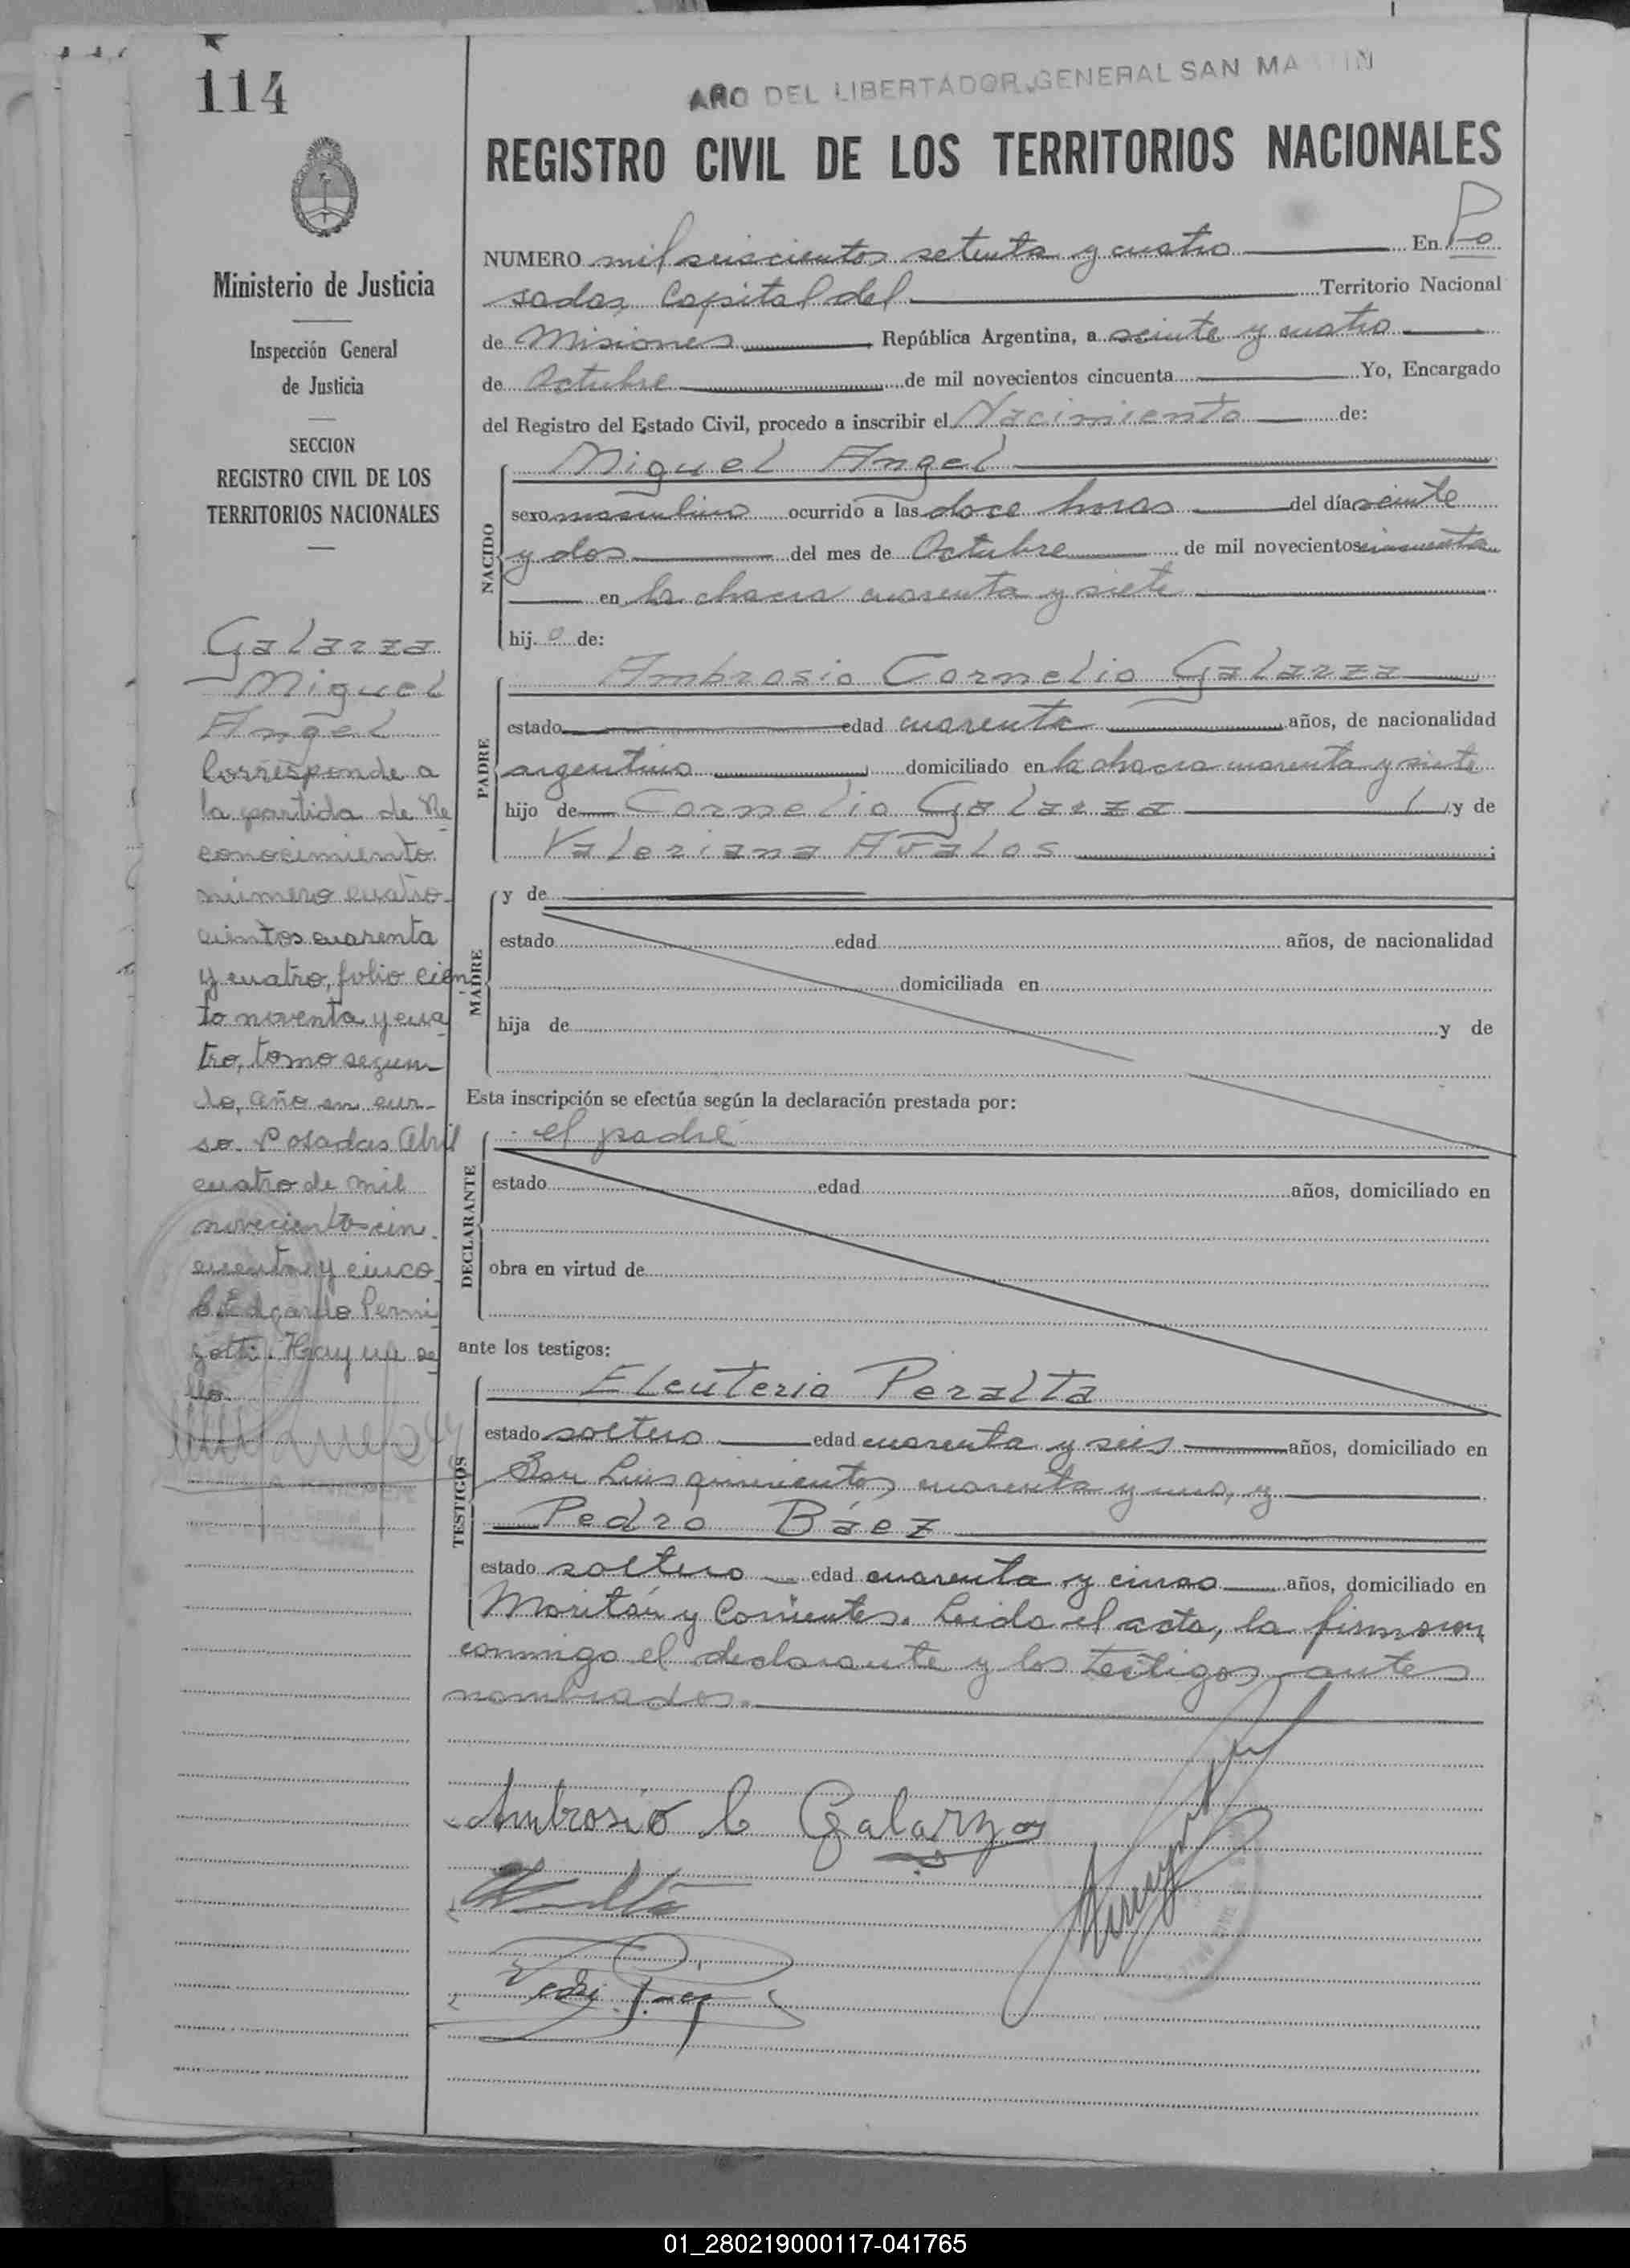 114
AÑO DEL LIBERTADOR GENERAL SAN MARTIN
REGISTRO CIVIL DE LOS TERRITORIOS NACIONALES
Ministerio de Justicia
Inspección General
de Justicia
SECCION
REGISTRO CIVIL DE LOS
TERRITORIOS NACIONALES
Galarza
Miguel
Angel
Corresponde a
la partida de Re
conocimiento
número cuatro
cientos cuarenta
y cuatro, folio cien
to noventa y cua
tro, tomo segun
do, año en cur-
so. Posadas Abril
cuatro de mil
novecientos cin
cuenta y cinco
Edgardo
Hay un se
llo.
NUMERO mil seiscientos setenta y cuatro En Po
sadas, Capital del Territorio Nacional
de Misiones República Argentina, a veinte y cuatro
de Octubre de mil novecientos cincuenta Yo, Encargado
del Registro del Estado Civil, procedo a inscribir el Nacimiento de:
NACIDO
Miguel Angel
sexo masculino ocurrido a las doce horas del día veinte
y dos del mes de Octubre de mil novecientos cincuenta
en la chacra cuarenta y siete
hij o de:
PADRE
Ambrosio Cornelio Galarza
estado edad cuarenta años, de nacionalidad
argentino domiciliado en la chacra cuarenta y siete
hijo de Cornelio Galarza y de
Valeriana Avalos ;
MADRE
y de
estado edad años, de nacionalidad
domiciliada en
hija de y de
Esta inscripción se efectúa según la declaración prestada por:
DECLARANTE
el padre
estado edad años, domiciliado en
obra en virtud de
ante los testigos:
TESTIGOS
Eleuterio Peralta
estado soltero edad cuarenta y seis años, domiciliado en
San Luis quinientos cuarenta y uno, y
Pedro Báez
estado soltero edad cuarenta y cinco años, domiciliado en
y Corrientes. Leida el acta, la firmaron
conmigo el declarante y los testigos antes
nombrados.
Ambrosio C Galarza
01_280219000117-041765